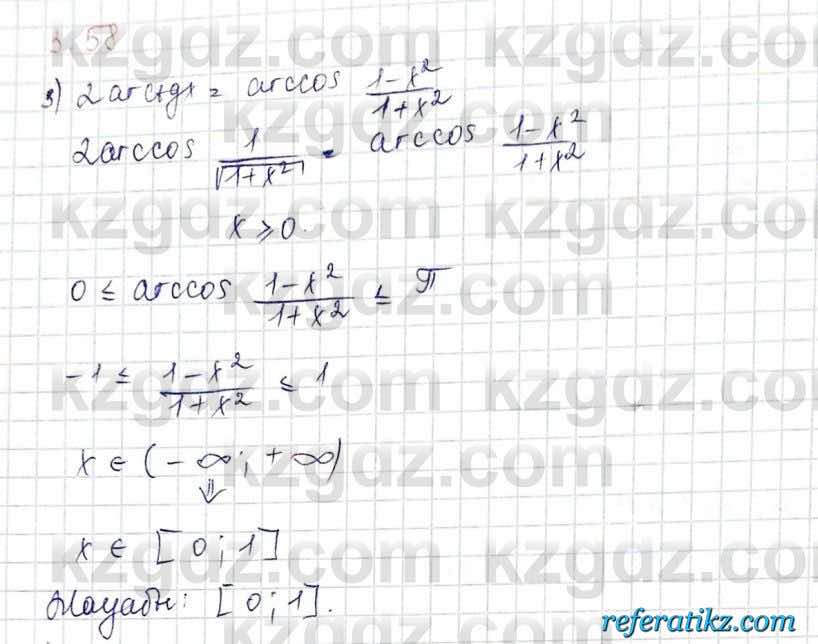 3.58
3) 2 arctgx = arccos (1-x²)/(1+x²)
2arccos 1/√(1+x²) = arccos (1-x²)/(1+x²)
x ≥ 0.
0 ≤ arccos (1-x²)/(1+x²) ≤ π
-1 ≤ (1-x²)/(1+x²) ≤ 1
x ∈ (-∞; +∞)
⇓
x ∈ [0; 1]
Жауабы: [0; 1].
kzgdz.com
referatikz.com